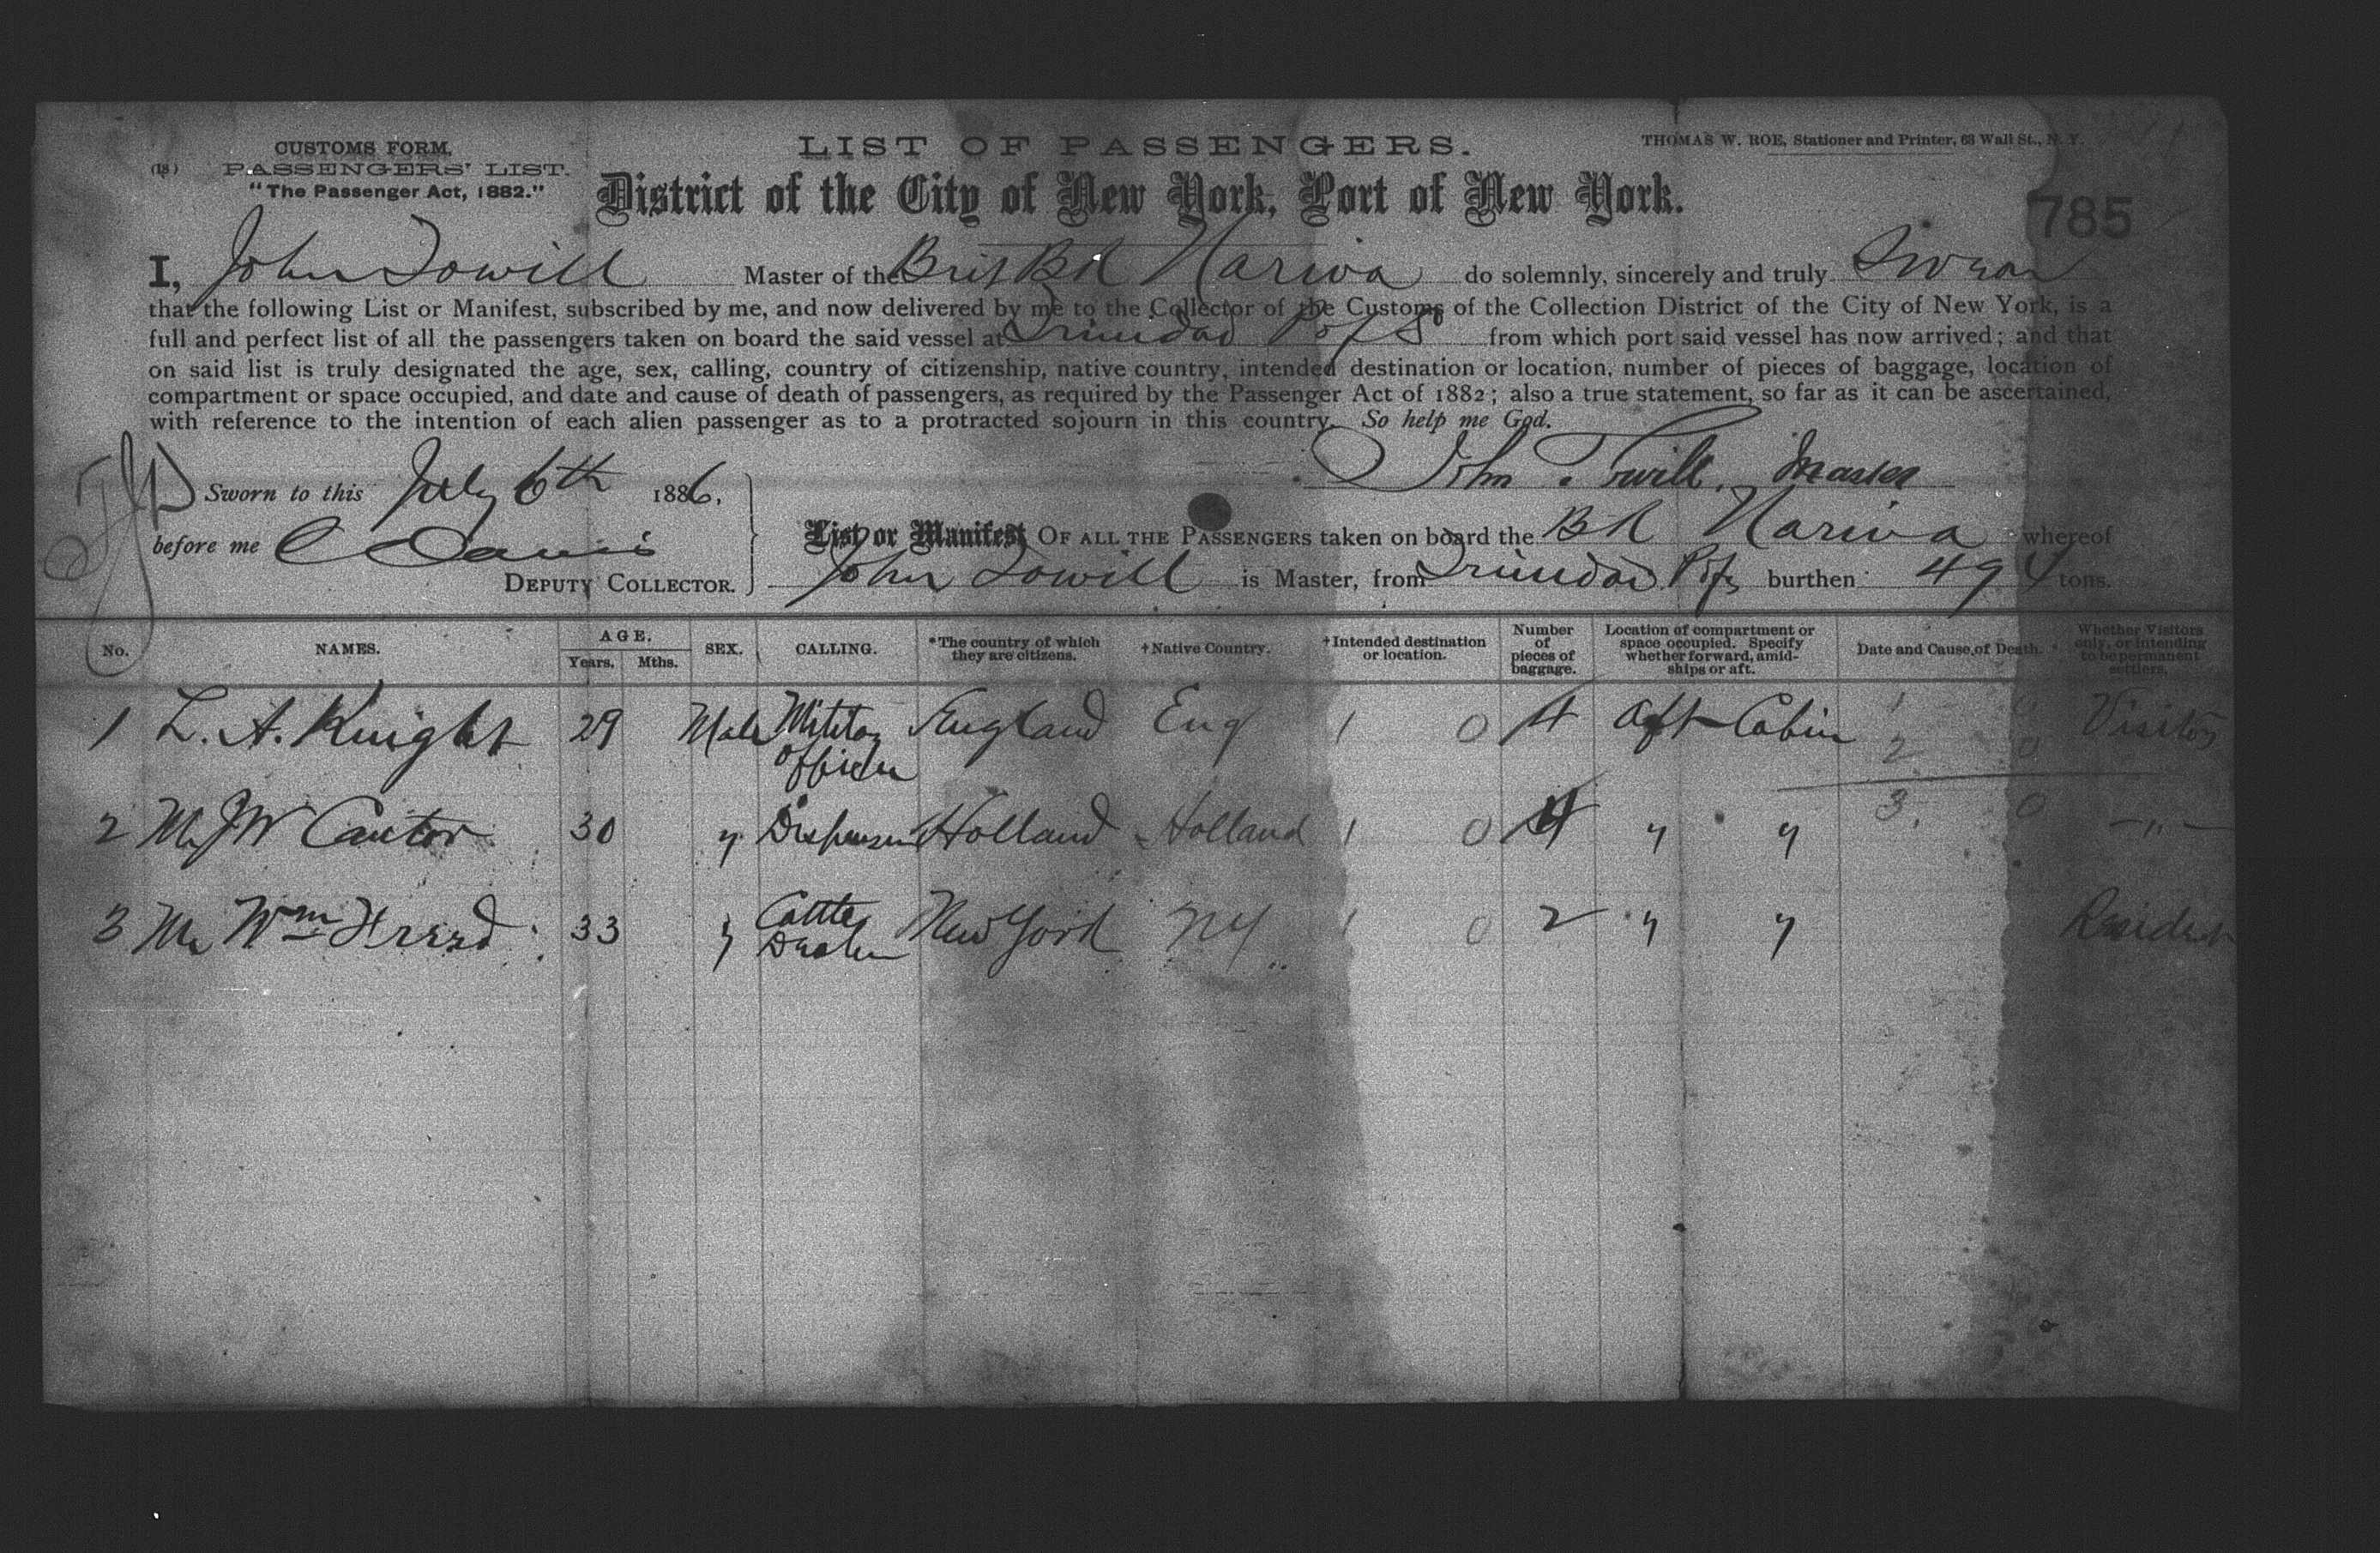 CUSTOMS FORM.
(18) PASSENGERS' LIST.
"The Passenger Act, 1882."
LIST OF PASSENGERS.
THOMAS W. ROE, Stationer and Printer, 63 Wall St., N. Y.
District of the City of New York, Port of New York.
785
I, John Towill Master of the Bk Nariva do solemnly, sincerely and truly Swear
that the following List or Manifest, subscribed by me, and now delivered by me to the Collector of the Customs of the Collection District of the City of New York, is a
full and perfect list of all the passengers taken on board the said vessel at Trinidad from which port said vessel has now arrived; and that
on said list is truly designated the age, sex, calling, country of citizenship, native country, intended destination or location, number of pieces of baggage, location of
compartment or space occupied, and date and cause of death of passengers, as required by the Passenger Act of 1882; also a true statement, so far as it can be ascertained,
with reference to the intention of each alien passenger as to a protracted sojourn in this country. So help me God.
John Towill. Master
Sworn to this July 6th 1886,
before me C Davis
DEPUTY COLLECTOR.
List or Manifest OF ALL THE PASSENGERS taken on board the Bk Nariva whereof
John Towill is Master, from Trinidad burthen 494 tons.
No. NAMES. AGE. Years. Mths. SEX. CALLING. *The country of which they are citizens. †Native Country. †Intended destination or location. Number of pieces of baggage. Location of compartment or space occupied. Specify whether forward, amid-ships or aft. Date and Cause of Death. Whether Visitors only, or intending to be permanent settlers.
1 L. A. Knight 29 Male Military Officer England Eng 1 0 4 aft Cabin 1 0 Visitor
2 0
2 Mr J W Cantor 30 " Dispenser Holland Holland 1 0 4 " " 3. 0 - " -
3 Mr Wm 33 " Cattle Dealer New York NY 1 0 2 " " Resident